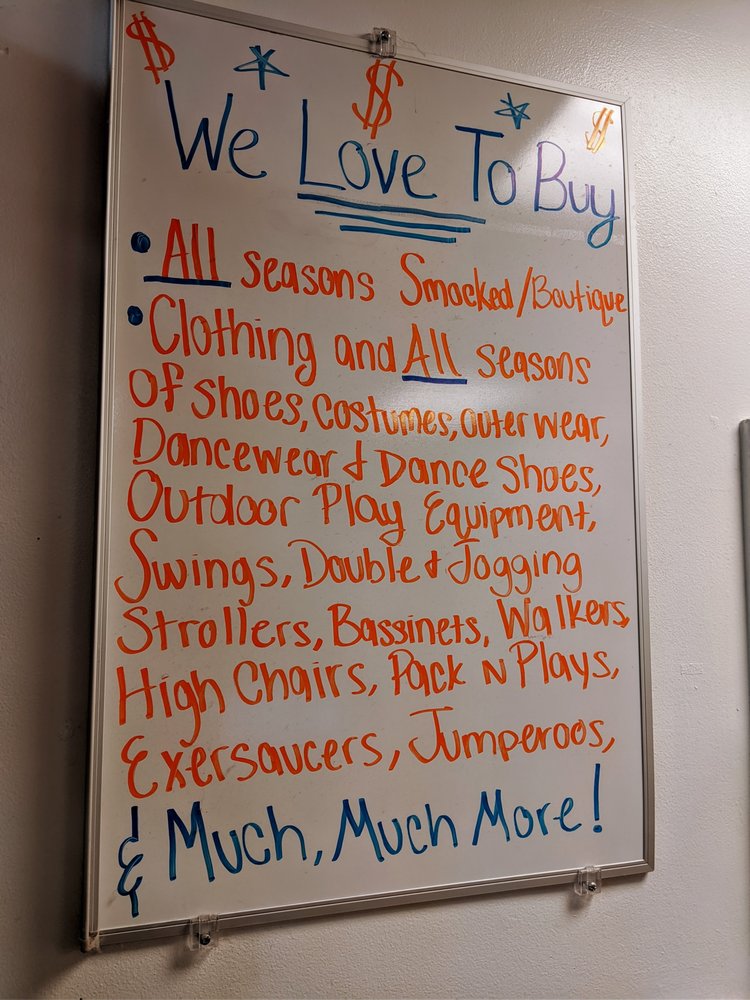 $ $ $
We Love To Buy
• All seasons Smocked/Boutique
• Clothing and All seasons
Of shoes, costumes, outer wear,
Dancewear & Dance Shoes,
Outdoor Play Equipment,
Swings, Double & Jogging
Strollers, Bassinets, Walkers,
High Chairs, Pack N Plays,
Exersaucers, Jumperoos,
& Much, Much More!